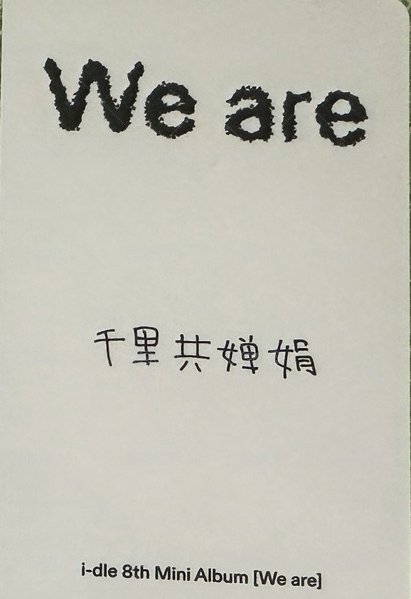 We are
千里共婵娟
i-dle 8th Mini Album [We are]